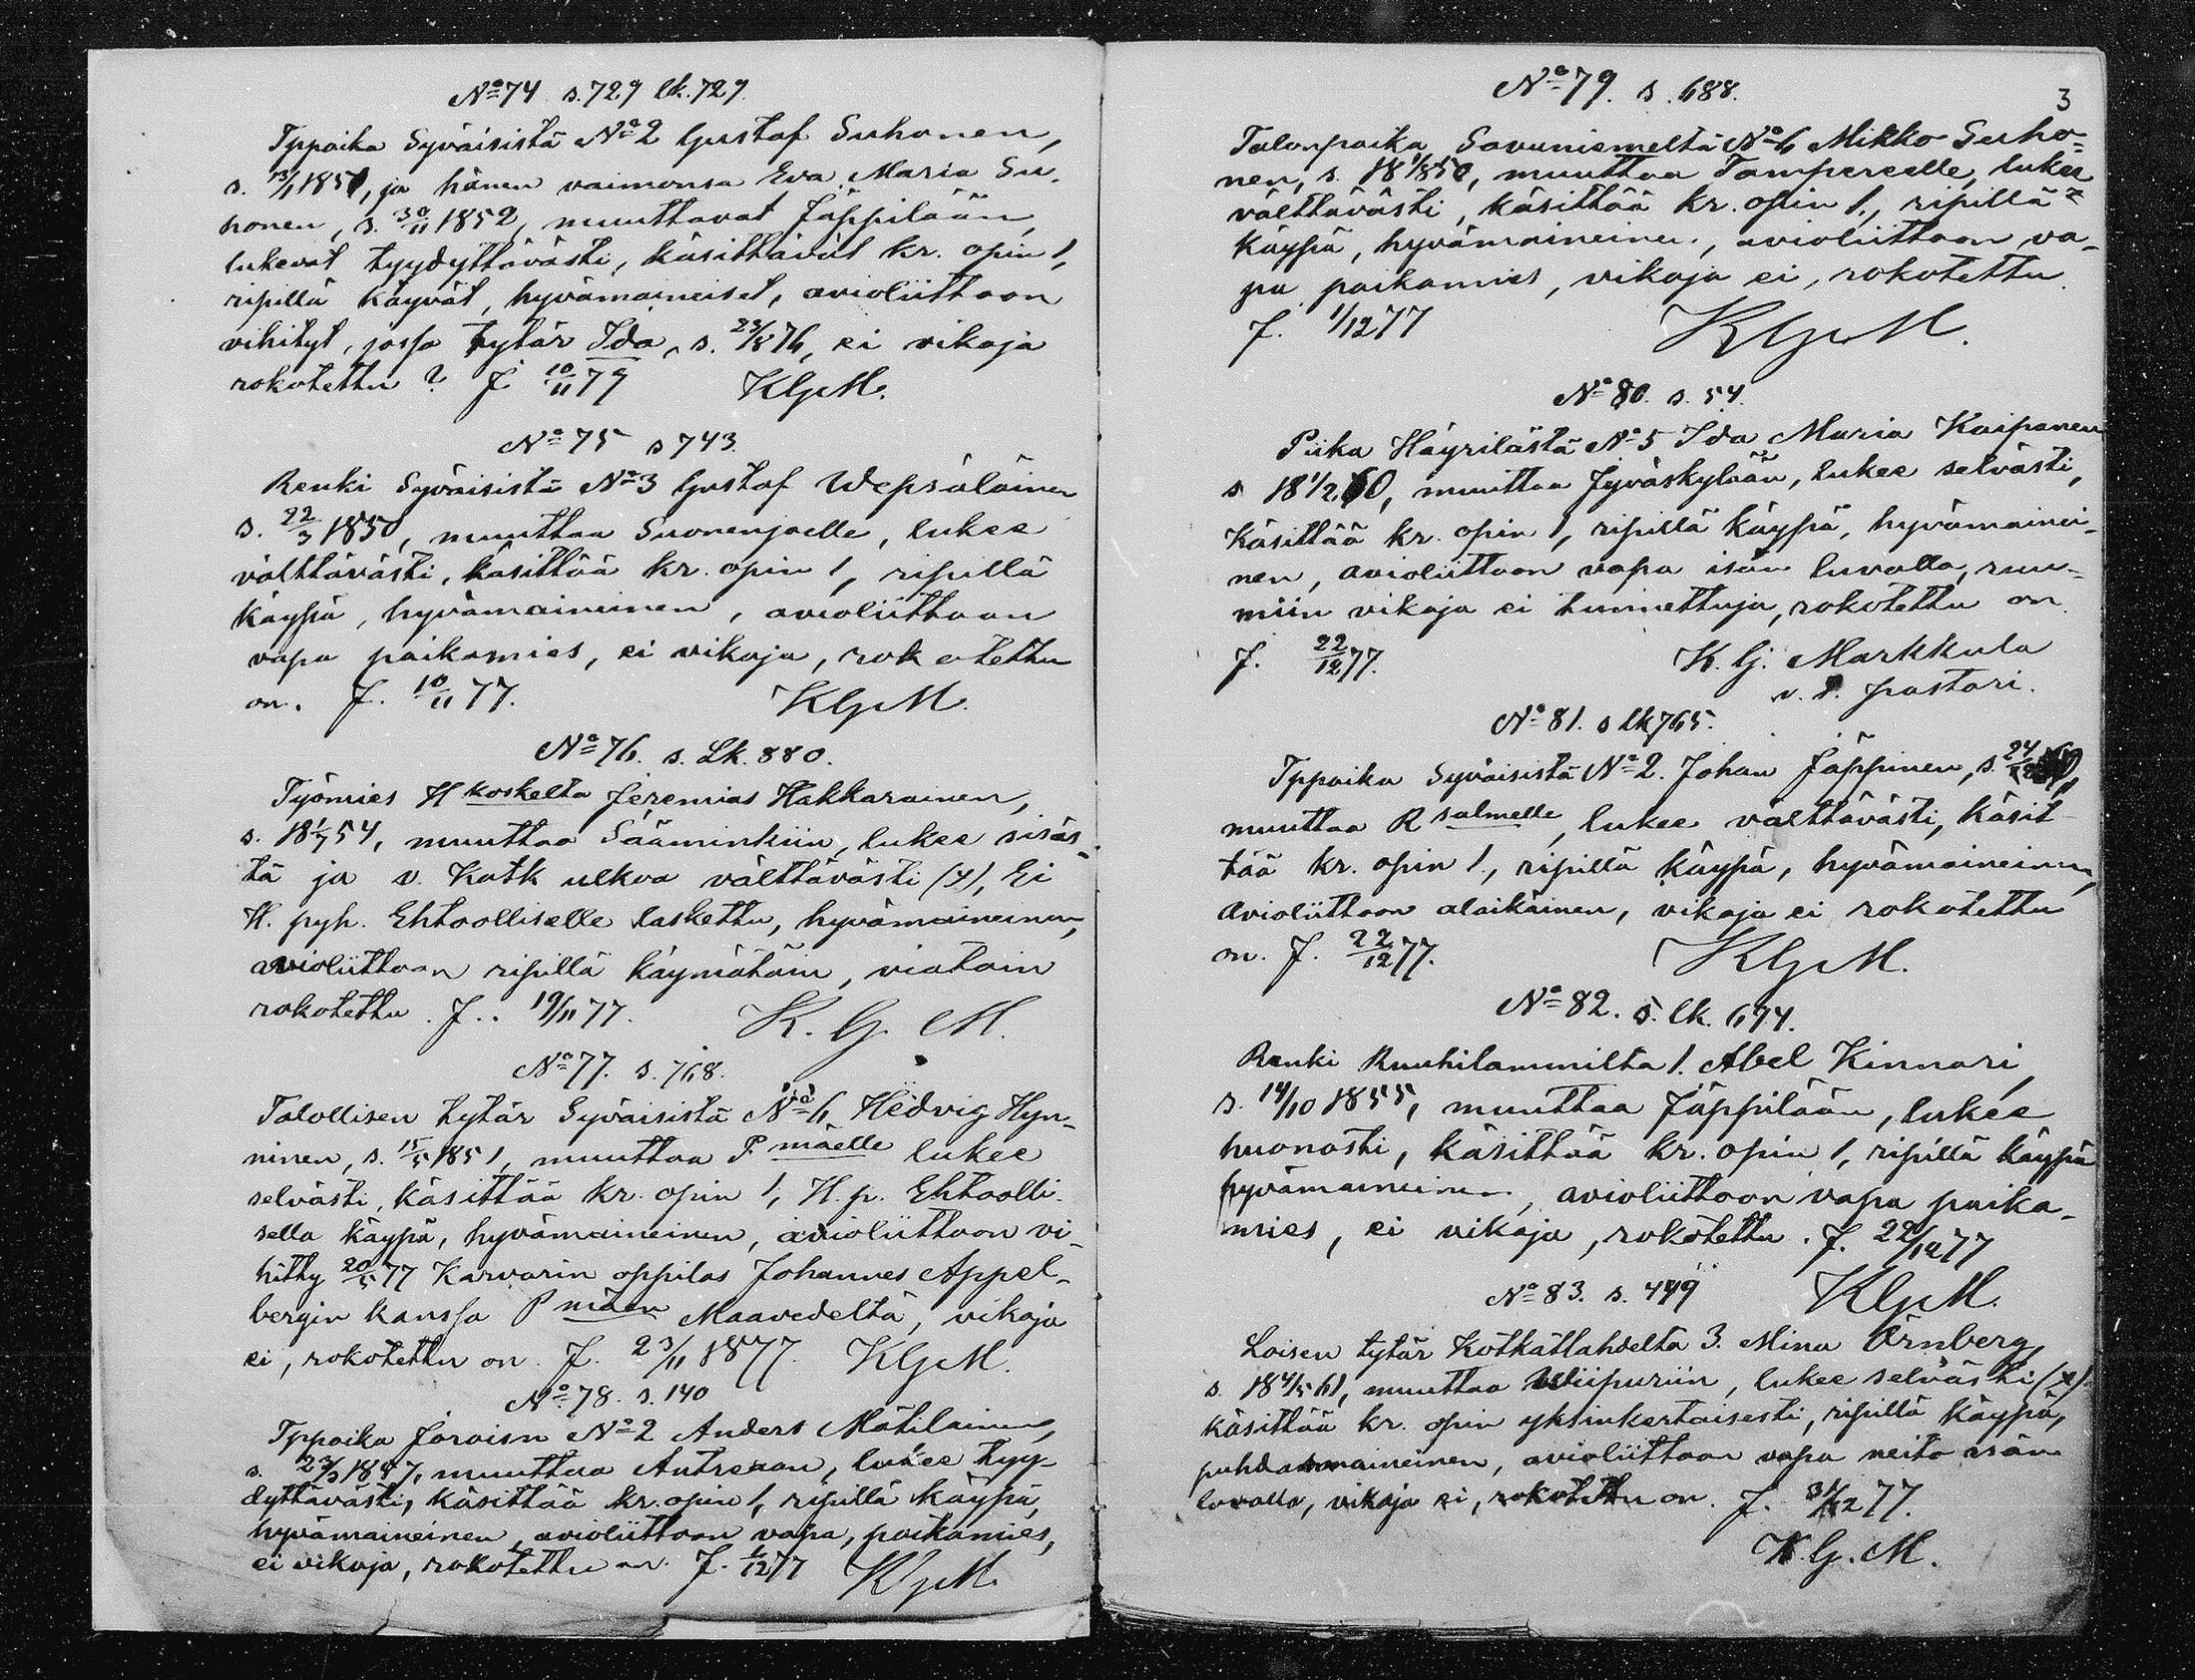 No 74 s. 729 lk. 729.
Tppoika Syväisistä No 2 Gustaf Suhonen,
s. 13/11 1851, ja hänen vaimonsa Eva Maria Su-
honen, s. 30/11 1852, muuttavat Jäppilään,
lukevat tyydyttävästi, käsittävät kr. opin 1,
ripillä käyvät, hyvämaineiset, avioliittoon
vihityt, jossa tytär Ida, s. 23/8 76, ei vikoja
rokotettu? J. 10/11 77 KGM.
No 75 s 743.
Renki Syväisistä No 3 Gustaf Wepsäläinen
s. 22/3 1850, muuttaa Suonenjoelle, lukee
välttävästi, käsittää kr. opin 1, ripillä
käypä, hyvämaineinen, avioliittoon
vapa poikamies, ei vikoja, rokotettu
on. J. 10/11 77. KGM.
No 76. s. Lk. 880.
Työmies Hkoskelta Jeremias Hakkarainen,
s. 18 1/7 54, muuttaa Sääminkiin, lukee sisäs-
tä ja v. Katk ulkoa välttävästi (y), Ei
H. pyh. Ehtoolliselle laskettu, hyvämaineinen,
avioliittoon ripillä käymätöin, viatoin
rokotettu. J. 19/11 77. K. G. M.
No 77. s. 768.
Talollisen tytär Syväisistä No 6 Hedvig Hyn-
ninen, s. 15/5 1851, muuttaa P.mäelle lukee
selvästi, käsittää kr. opin 1, H. p. Ehtoolli-
sella käypä, hyvämaineinen, avioliittoon vi-
hitty 20/5 77 Karvarin oppilas Johannes Appel-
bergin kanssa Pmäen Maavedeltä, vikoja
ei, rokotettu on. J. 23/11 1877. KGM.
No 78. s. 140
Tppoika Joroisn No 2 Anders Mätiläinen,
s. muuttaa Antreaan, lukee tyy-
dyttävästi, käsittää kr. opin 1, ripillä käypä,
hyvämaineinen, avioliittoon vapa, poikamies,
ei vikoja, rokotettu on. J. 1/12 77 KGM.
3
No 79. s. 688.
Talonpoika Savuniemeltä No 6 Mikko Suho-
nen, s. 18 1/8 50, muuttaa Tampereelle, lukee
välttävästi, käsittää kr. opin 1., ripillä
käypä, hyvämaineinen, avioliittoon va-
pa poikamies, vikoja ei, rokotettu.
J. 1/12 77 KGM.
No 80. s. 54.
Piika Häyrilästä No 5 Ida Maria Kaipanen
s 18 1/2 60, muuttaa Jyväskylään, lukee selvästi,
Käsittää kr. opin 1, ripillä käypä, hyvämainei-
nen, avioliittoon vapa isän luvalla, ruu-
miin vikoja ei tunnettuja, rokotettu on.
J. 22/12 77. K. G. Markkula
v. t. pastori.
No 81. s lk 765.
Tppoika Syväisistä No 2. Johan Jäppinen, s. 24
muuttaa Rsalmelle, lukee välttävästi, käsit-
tää kr. opin 1., ripillä käypä, hyvämaineinen,
avioliittoon alaikäinen, vikoja ei rokotettu
on. J. 22/12 77. KGM.
No 82. s. lk. 674.
Renki Ruuhilammilta 1. Abel Kinnari,
s. 14/10 1855, muuttaa Jäppilään, lukee
huonosti, käsittää kr. opin 1, ripillä käypä
hyvämaineinen, avioliittoon vapa poika-
mies, ei vikoja, rokotettu. J. 22/12 77
No 83. s. 449 KGM.
Loisen tytär Kotkatlahdelta 3. Mina Örnberg,
s. 18 4/5 61, muuttaa Wiipuriin, lukee selvästi (x)
käsittää kr. opin yksinkertaisesti, ripillä käypä,
puhdasmaineinen, avioliittoon vapa neito isän
luvalla, vikoja ei, rokotettu on. J. 31/12 77.
K. G. M.